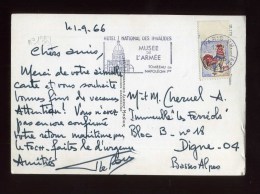 41.9.66
HOTEL NATIONAL DES INVALIDES
MUSEE
DE
L'ARMÉE
TOMBEAU DE
NAPOLEON 1er
Chers amis,
Merci de votre aimable
carte et vous souhaite
bonnes fins de vacances
Attention! Vous n'avez
pas encore confirmé
votre retour maritime par
le Foso. Faites le d'urgence
Amitiés
M. et M. Chesnel A.
Immeuble "le
Bloc B - n° 18
Digne - 04
Basses Alpes